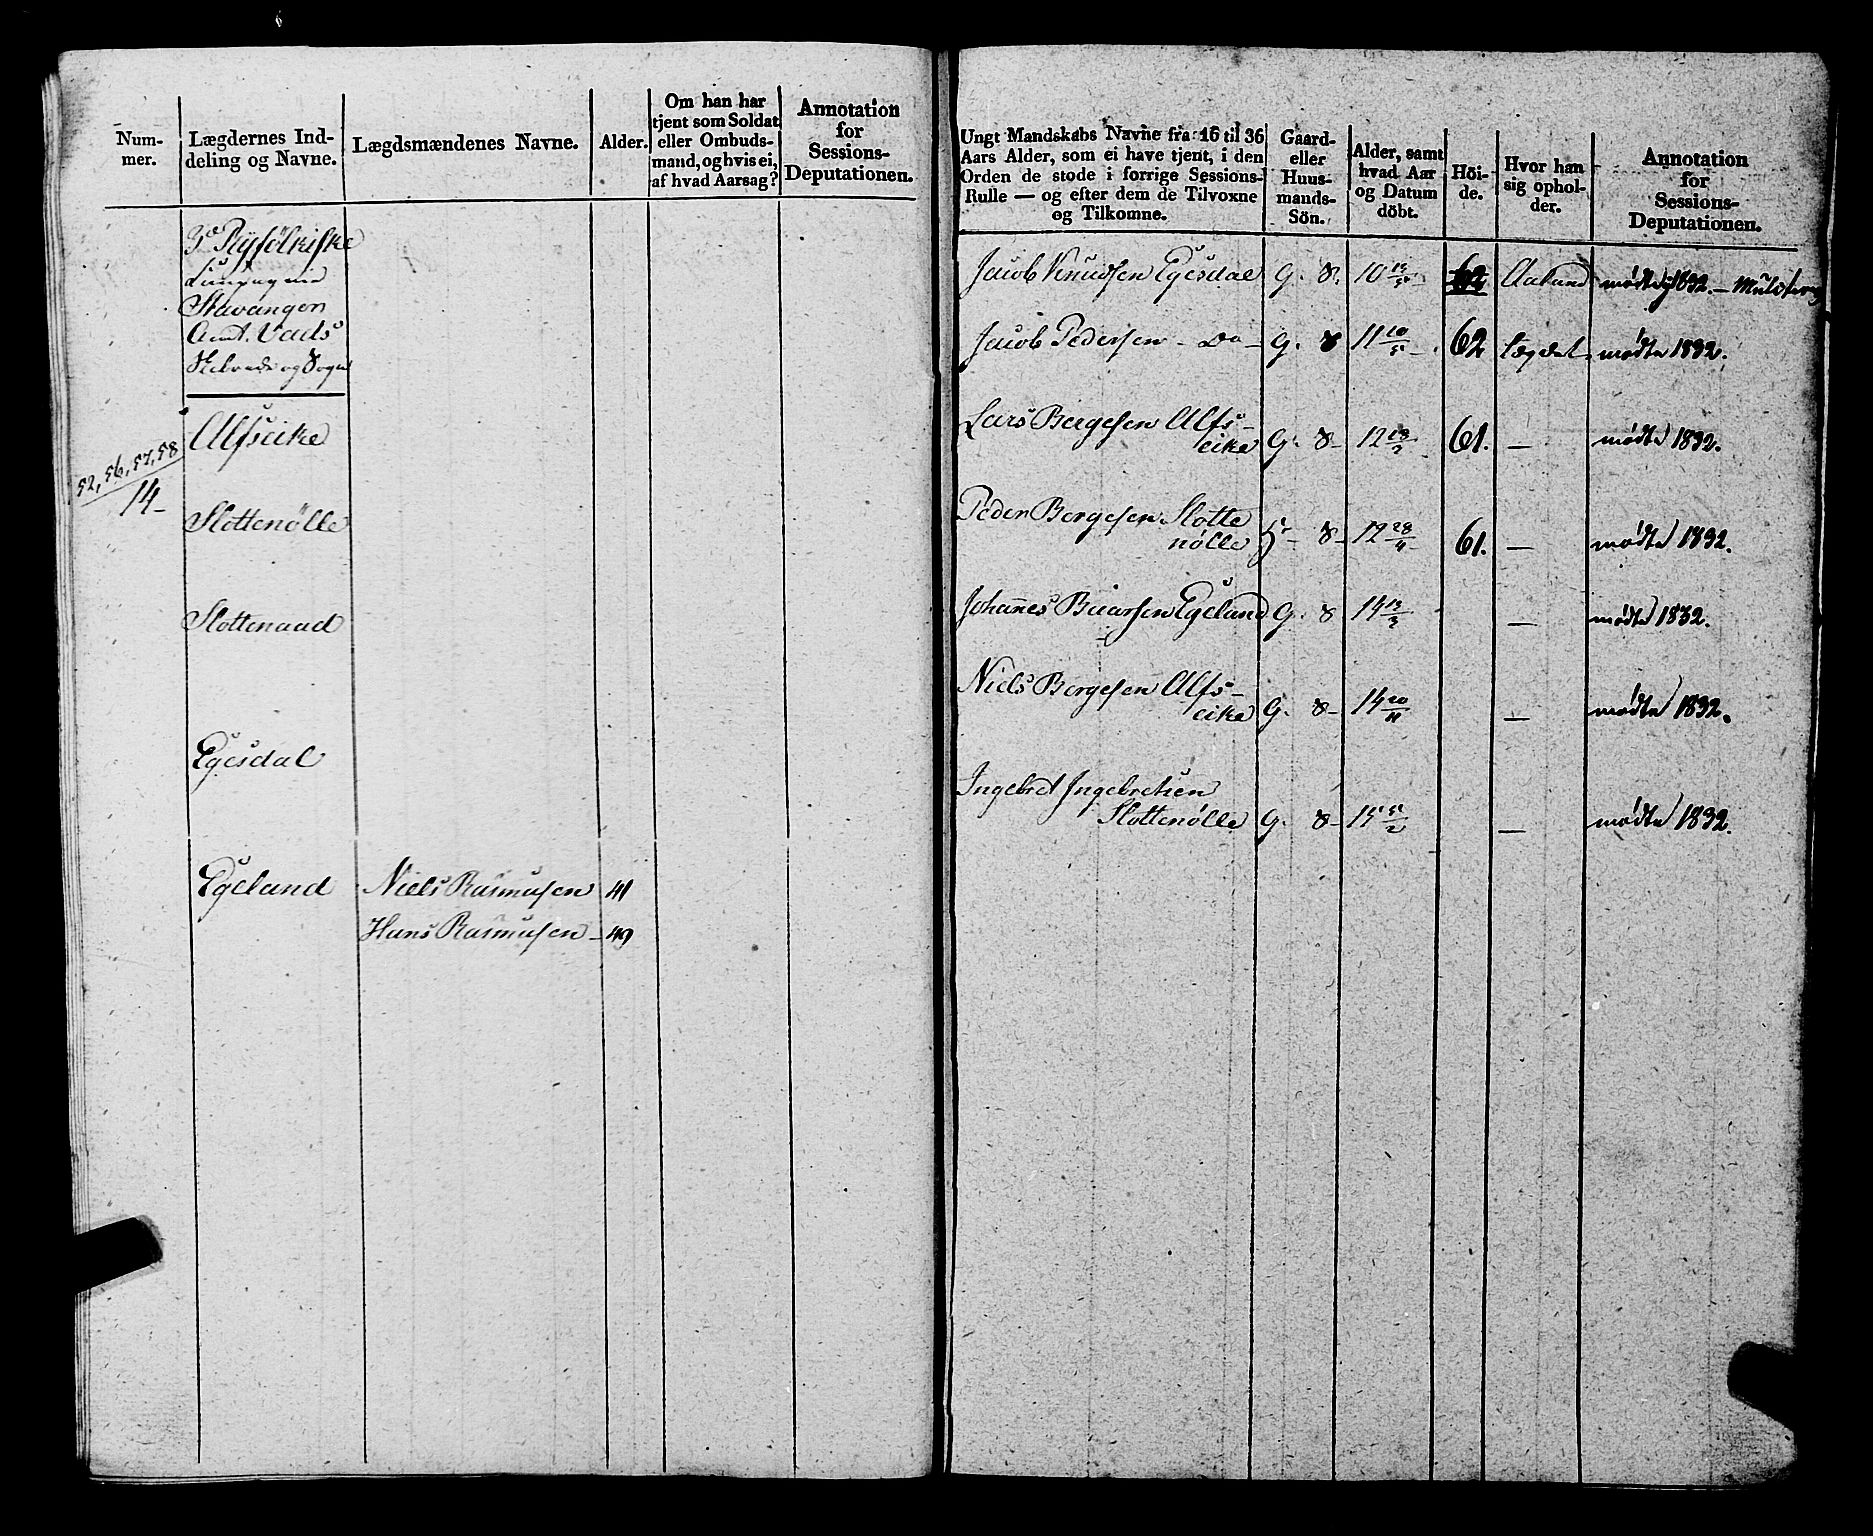 6
Num-
mer.
Lægdernes Ind-
deling og Navne.
Lægdsmændenes Navne.
Alder.
Om han har
tjent som Soldat
eller Ombuds-
mand, og hvis ei,
af hvad Aarsag?
Annotation
for
Sessions-
Deputationen.
3e Ryfölkiske
Stavanger
Amt. Vads
Skibrede og Sogn
Alfseike
52, 56, 57, 58
14-
Slottenölle
Slottenaad
Egesdal
Egeland Niels Rasmusen 41
Hans Rasmusen - 49
Ungt Mandskabs Navne fra 16 til 36
Aars Alder, som ei have tjent, i den
Orden de stode i forrige Sessions-
Rulle — og efter dem de Tilvoxne
og Tilkomne.
Gaard-
eller
Huus-
mands-
Sön.
Alder, samt
hvad Aar
og Datum
döbt.
Höi-
de.
Hvor han
sig ophol-
der.
Annotation
for
Sessions-
Deputationen.
Jacob Knudsen Egesdal G. S. 10 62 Aaland mødte 1832. -
Jacob Pedersen - Do - G. S 11 10/5 - 62 Lægdet mødte 1832.
Lars Bergesen Alfs-
eike G. S- 12 61. — mødte 1832.
Peder Bergesen Slotte
nölle S- 12 28/4 61. — mødte 1832.
Johannes Egeland G. S 14 — mødte 1832.
Niels Bergesen Alfs-
eike G. S- 14 20/11 — mødte 1832.
Ingebret Ingebretsen
Slottenölle G. S- 15 5/2 — mødte 1832.